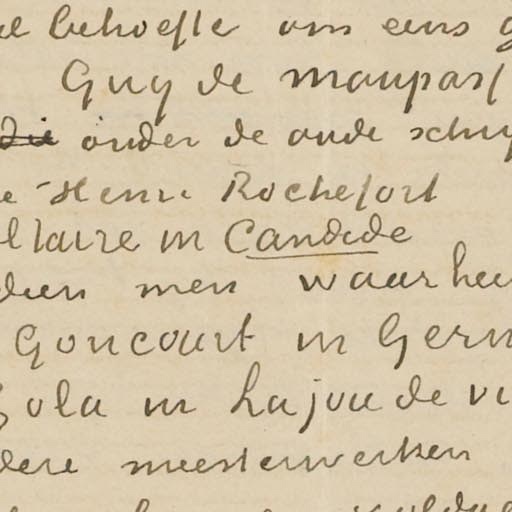 behoefte om eens
Guy de Maupass
die onder de oude schry
Henri Rochefort
ltaire in Candide
dien men waarhei
Goncourt in Germ
Zola in La joie de vi
dere meesterwerken